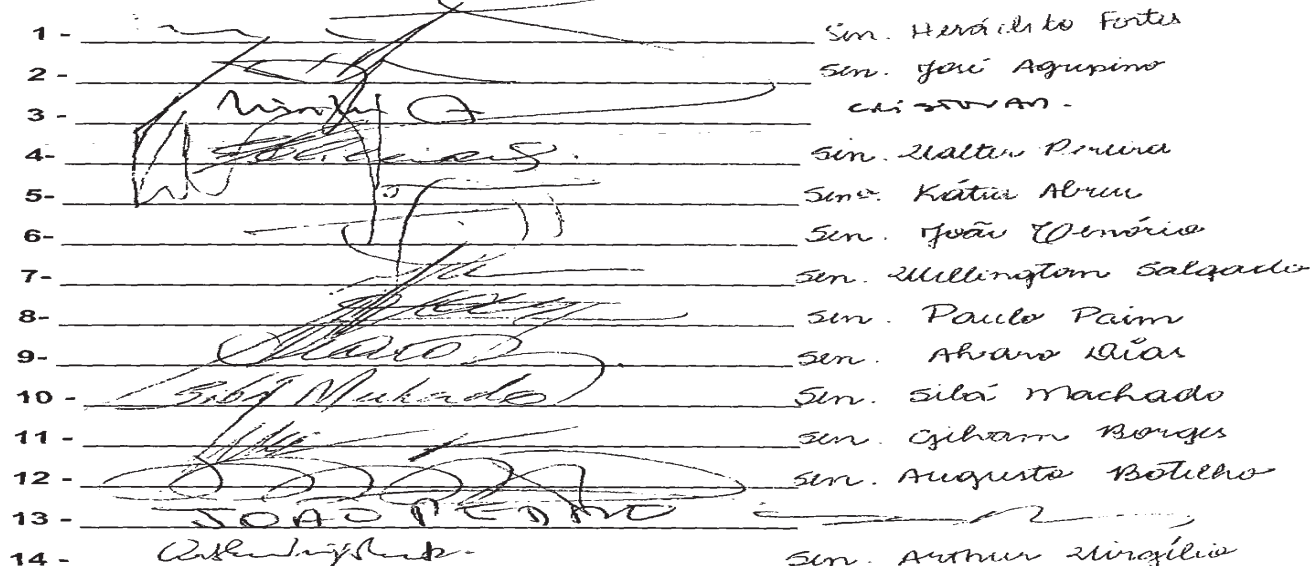 1 - Sen. Heráclito Fortes
2 - Sen. José Agripino
3 - CRISTOVAM.
4- Sen. Valter Pereira
5- Senª. Kátia Abreu
6- Sen. João Tenório
7- Sen. Wellington Salgado
8- Sen. Paulo Paim
9- Alvaro D Sen. Alvaro Dias
10 - Sibá Machado Sen. Sibá Machado
11 - Sen. Gilvam Borges
12 - Sen. Augusto Botelho
13 - JOAO PEDRO
14 - Sen. Arthur Virgílio